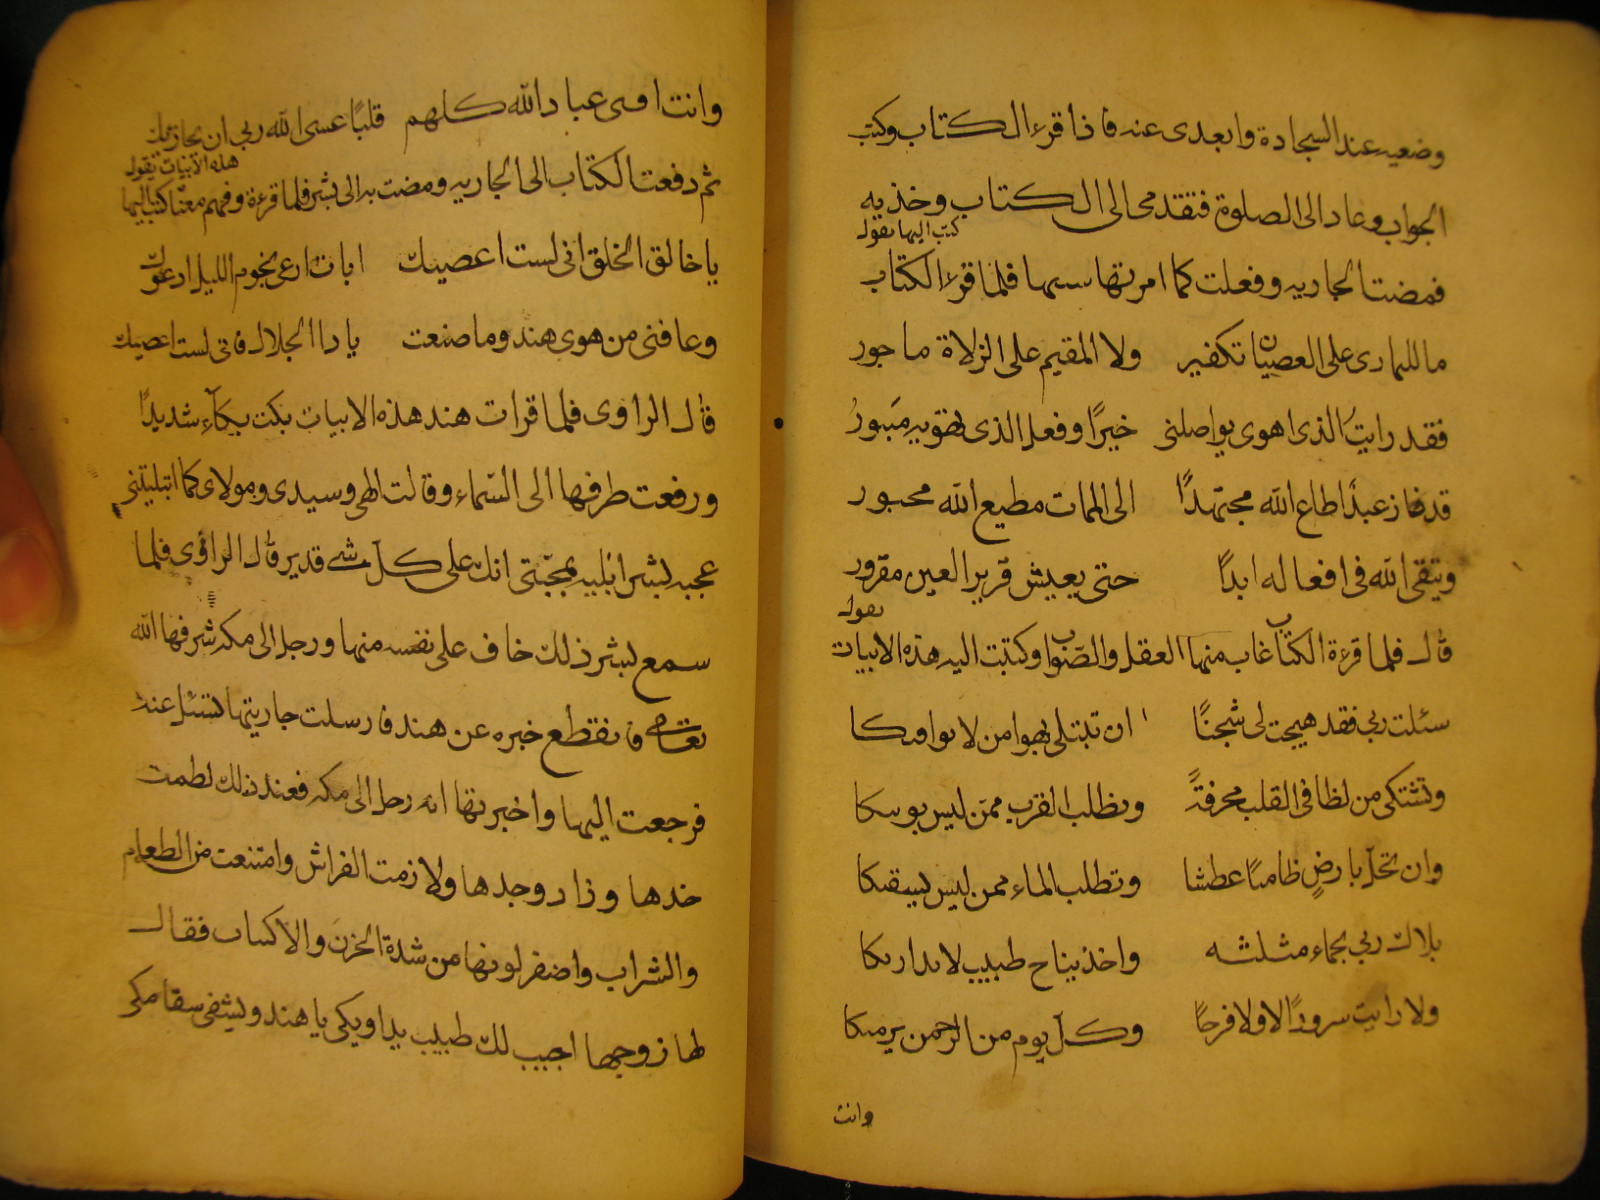 وضعيه عند السجادة وابعدى عنه فاذا قرء الكتاب وكتب
الجواب وعاد الى الصلوة فتقدمى الى الكتاب وخذيه
كتب اليها يقول
فمضت الجاريه وفعلت كما امرتها ستها فلما قرء الكتاب
على العصيان تكفير ولا المقيم على الزلاة ماجور
فقد رايت الذى اهوى يواصلنى خيرًا وفعل الذى مبتورُ
قد فاز عبدًا اطاع الله مجتهدًا الى الممات مطيع الله محبور
ويتقى الله فى افعاله ابدًا حتى يعيش قرير العين مقرور
يقول
قال فلما قرءة الكتاب غاب منها العقل والصواب وكتبت اليه هذه الابيات
سئلت ربى فقد هيجت لى شجنًا ان تبتلى بهوا من لا يواويكا
وتشتكى من لظا فى القلب محرقةً وتطلب القرب ممن ليس
وان تحل بارضٍ ظاميًا عطشا وتطلب الماء ممن ليس يسقيكا
بلاك ربى بحماء مثلثه طبيب لا يداريكا
ولا رايت سرورًا لا ولا فرحًا وكل يوم من الرحمن يرميكا
وانت
وانت اقسى عباد الله كلهم قلبًا عسى الله ربى ان يجازيك
هذه الابيات يقول
ثم دفعت الكتاب الى الجاريه ومضت به الى بشر فلما قرءة وفهم معناه كتب اليها
يا خالق الخلق انى لست اعصيك ابات ارعى نجوم الليل ادعوك
وعافنى من هوى هند وما صنعت يا ذا الجلال فانى لست اعصيك
قال الراوى فلما قرات هند هذه الابيات بكت بكآء شديدًا
ورفعت طرفها الى السماء وقالت الهى وسيدى ومولاى كما ابتليتنى
بشر ابليه بمحبتى انك على كل شئ قدير قال الراوى فلما
سمع بشر ذلك خاف على نفسه منها ورحل الى مكه شرفها الله
تعالى فانقطع خبره عن هند فارسلت جاريتها تسئل عنه
فرجعت اليها واخبرتها انه رحل الى مكه فعند ذلك لطمت
خدها وزاد وجدها ولازمت الفراش وامتنعت من الطعام
والشراب واصفر لونها من شدة الحزن والاكتئاب فقال
لها زوجها اجيب لك طبيب يداويكى يا هند ويشفى سقامكى